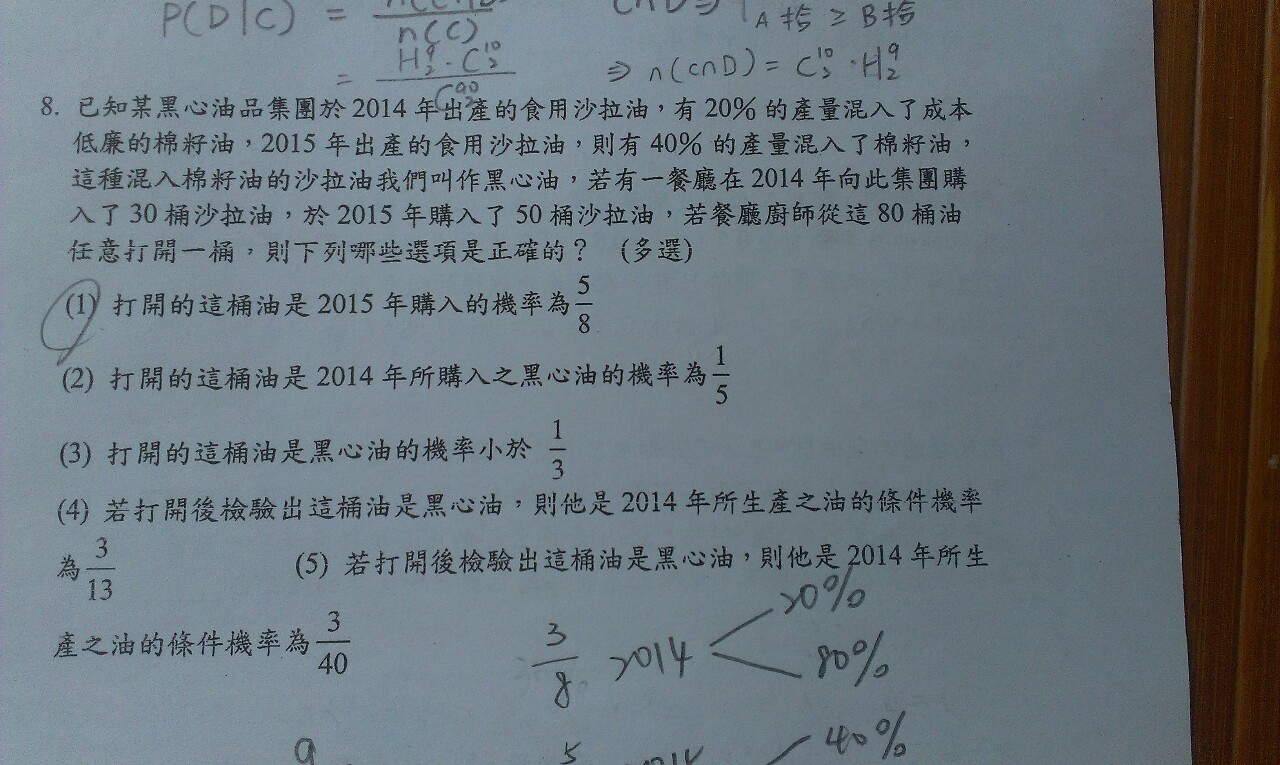 P(D|C) = n(C∩D) / n(C)
C∩D ⇒
A拾 ≥ B拾
= H⁹₂ · C¹⁰₂ / C⁹⁰₂
⇒ n(C∩D) = C¹⁰₂ · H⁹₂
8. 已知某黑心油品集團於 2014 年出產的食用沙拉油，有 20% 的產量混入了成本
低廉的棉籽油，2015 年出產的食用沙拉油，則有 40% 的產量混入了棉籽油，
這種混入棉籽油的沙拉油我們叫作黑心油，若有一餐廳在 2014 年向此集團購
入了 30 桶沙拉油，於 2015 年購入了 50 桶沙拉油，若餐廳廚師從這 80 桶油
任意打開一桶，則下列哪些選項是正確的？ (多選)
(1) 打開的這桶油是 2015 年購入的機率為 5/8
(2) 打開的這桶油是 2014 年所購入之黑心油的機率為 1/5
(3) 打開的這桶油是黑心油的機率小於 1/3
(4) 若打開後檢驗出這桶油是黑心油，則他是 2014 年所生產之油的條件機率
為 3/13 (5) 若打開後檢驗出這桶油是黑心油，則他是 2014 年所生
產之油的條件機率為 3/40
20%
3/8 2014
80%
40%
9
5